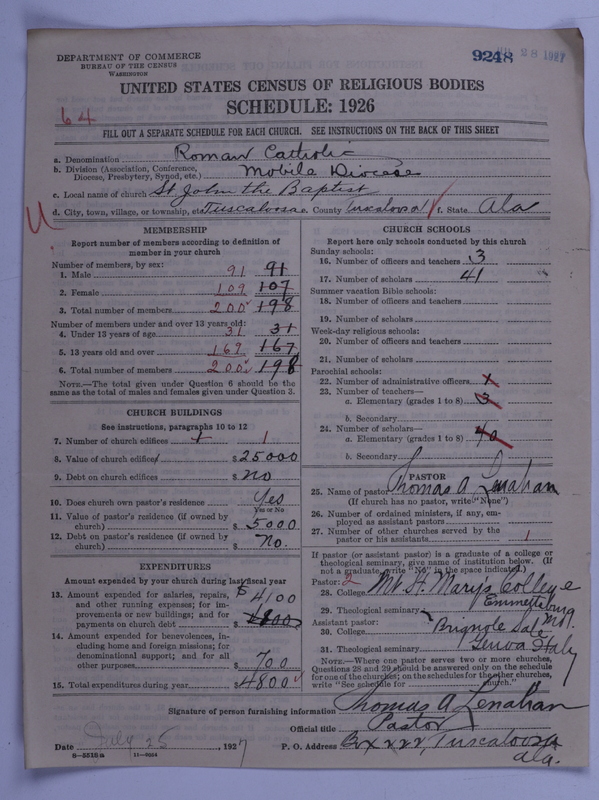 DEPARTMENT OF COMMERCE
BUREAU OF THE CENSUS
WASHINGTON
9248
28 1927
UNITED STATES CENSUS OF RELIGIOUS BODIES
SCHEDULE: 1926
64
FILL OUT A SEPARATE SCHEDULE FOR EACH CHURCH. SEE INSTRUCTIONS ON THE BACK OF THIS SHEET
a. Denomination Roman Catholic
b. Division (Association, Conference, Diocese, Presbytery, Synod, etc.) Mobile Diocese
c. Local name of church St John the Baptist
d. City, town, village, or township, etc. Tuscaloosa e. County Tuscaloosa f. State Ala
MEMBERSHIP
Report number of members according to definition of
member in your church
Number of members, by sex:
1. Male 91 91
2. Female 109 107
3. Total number of members 200 198
Number of members under and over 13 years old:
4. Under 13 years of age 31 31
5. 13 years old and over 169 167
6. Total number of members 200 198
NOTE.—The total given under Question 6 should be the
same as the total of males and females given under Question 3.
CHURCH BUILDINGS
See instructions, paragraphs 10 to 12
7. Number of church edifices 1
8. Value of church edifice $25000
9. Debt on church edifices $ No
10. Does church own pastor's residence Yes
Yes or No
11. Value of pastor's residence (if owned by
church) $5000
12. Debt on pastor's residence (if owned by
church) $ No.
EXPENDITURES
Amount expended by your church during last fiscal year
13. Amount expended for salaries, repairs, $4100
and other running expenses; for im-
provements or new buildings; and for
payments on church debt
14. Amount expended for benevolences, in-
cluding home and foreign missions; for
denominational support; and for all
other purposes $700
15. Total expenditures during year $4800
CHURCH SCHOOLS
Report here only schools conducted by this church
Sunday schools:
16. Number of officers and teachers 3
17. Number of scholars 41
Summer vacation Bible schools:
18. Number of officers and teachers
19. Number of scholars
Week-day religious schools:
20. Number of officers and teachers
21. Number of scholars
Parochial schools:
22. Number of administrative officers
23. Number of teachers—
a. Elementary (grades 1 to 8) 3
b. Secondary
24. Number of scholars—
a. Elementary (grades 1 to 8) 40
b. Secondary
PASTOR
25. Name of pastor Thomas A Lenahan
(If church has no pastor, write "None")
26. Number of ordained ministers, if any, em-
ployed as assistant pastors
27. Number of other churches served by the
pastor or his assistants 1
If pastor (or assistant pastor) is a graduate of a college or
theological seminary, give name of institution below. (If
not a graduate, write "No" in the space indicated.)
Pastor: 2
28. College Mt. St Mary's College
Emmettsburg
29. Theological seminary Md.
Assistant pastor: Brignole Sale
30. College
Genoa Italy
31. Theological seminary
NOTE.—Where one pastor serves two or more churches,
Questions 28 and 29 should be answered only on the schedule
for one of the churches; on the schedules for the other churches,
write "See schedule for church."
Signature of person furnishing information Thomas A Lenahan
Official title Pastor
Date July 25, 1927 P. O. Address Bx 222, Tuscaloosa
Ala.
8—5515a 11—9664